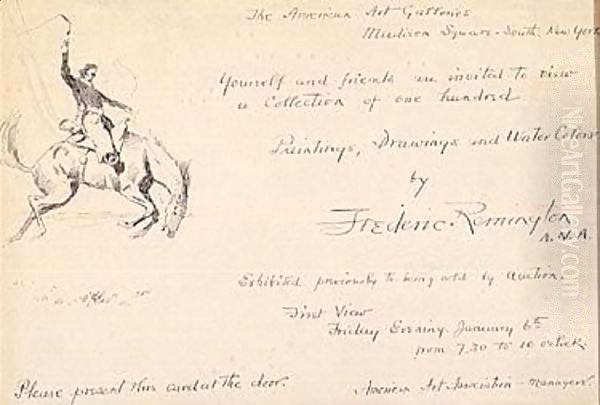 The American Art Galleries
Madison Square - South, New York
Yourself and friends are invited to view
a Collection of one hundred
Paintings, Drawings and Water Colors
by
Frederic Remington
A.N.A.
Exhibited previously to being sold by Auction.
First View
Friday Evening January 6th
from 7.30 to 10 o'clock
Please present this card at the door.
American Art Association - Managers.
NiceArtGallery.com